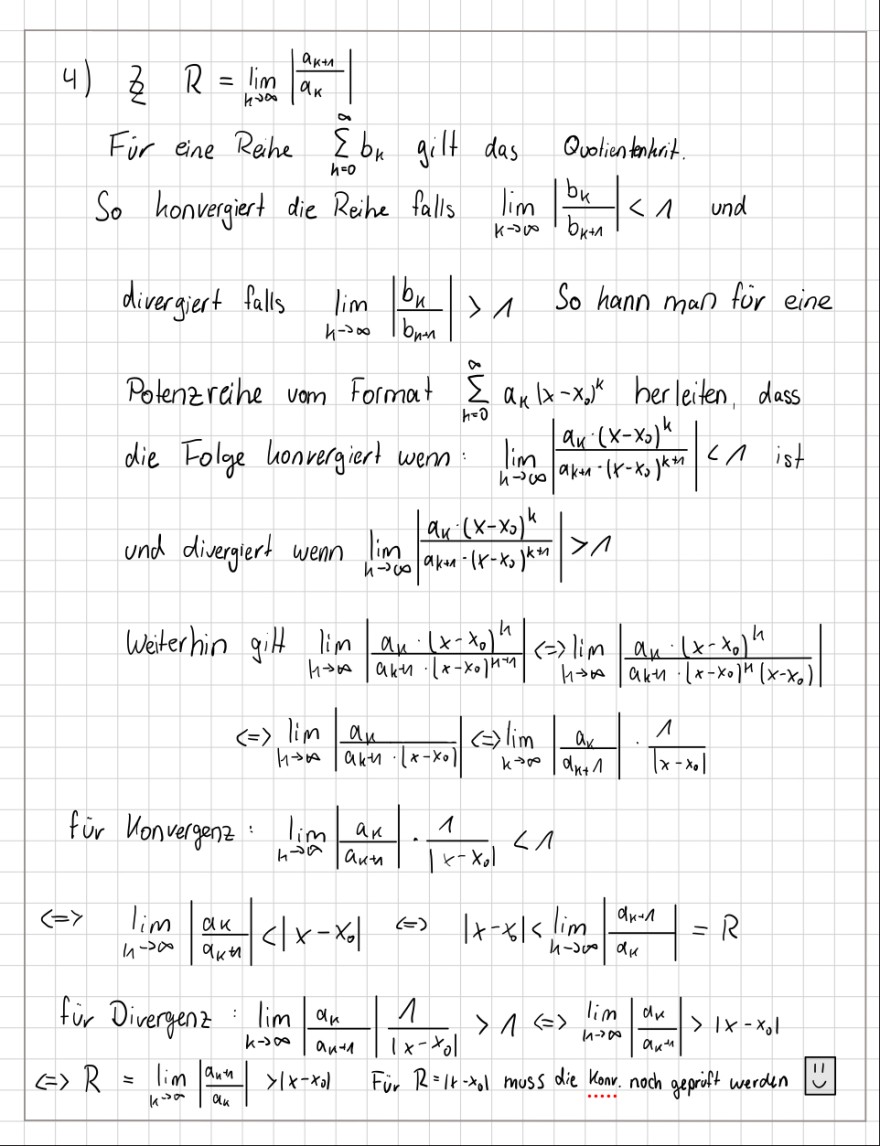 4) Z R = lim k→∞ |a_{k+1}/a_k|
Für eine Reihe ∑_{k=0}^{∞} b_k gilt das Quotientenkrit.
So konvergiert die Reihe falls lim k→∞ |b_k/b_{k+1}| < 1 und
divergiert falls lim k→∞ |b_k/b_{k+1}| > 1 So kann man für eine
Potenzreihe vom Format ∑_{k=0}^{∞} a_k (x-x_0)^k herleiten, dass
die Folge konvergiert wenn: lim k→∞ |a_k·(x-x_0)^k / a_{k+1}·(x-x_0)^{k+1}| < 1 ist
und divergiert wenn lim k→∞ |a_k·(x-x_0)^k / a_{k+1}·(x-x_0)^{k+1}| > 1
Weiterhin gilt lim k→∞ |a_k·(x-x_0)^k / a_{k+1}·(x-x_0)^{k+1}| <=> lim k→∞ |a_k·(x-x_0)^k / a_{k+1}·(x-x_0)^k (x-x_0)|
<=> lim k→∞ |a_k / a_{k+1}·(x-x_0)| <=> lim k→∞ |a_k/a_{k+1}| · 1/|x-x_0|
für Konvergenz: lim k→∞ |a_k/a_{k+1}| · 1/|x-x_0| < 1
<=> lim k→∞ |a_k/a_{k+1}| < |x-x_0| <=> |x-x_0| < lim k→∞ |a_{k+1}/a_k| = R
für Divergenz: lim k→∞ |a_k/a_{k+1}| 1/|x-x_0| > 1 <=> lim k→∞ |a_k/a_{k+1}| > |x-x_0|
<=> R = lim k→∞ |a_{k+1}/a_k| > |x-x_0| Für R=|x-x_0| muss die Konv. noch geprüft werden